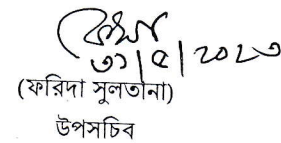 ৩১|৫|২০২৩
(ফরিদা সুলতানা)
উপসচিব